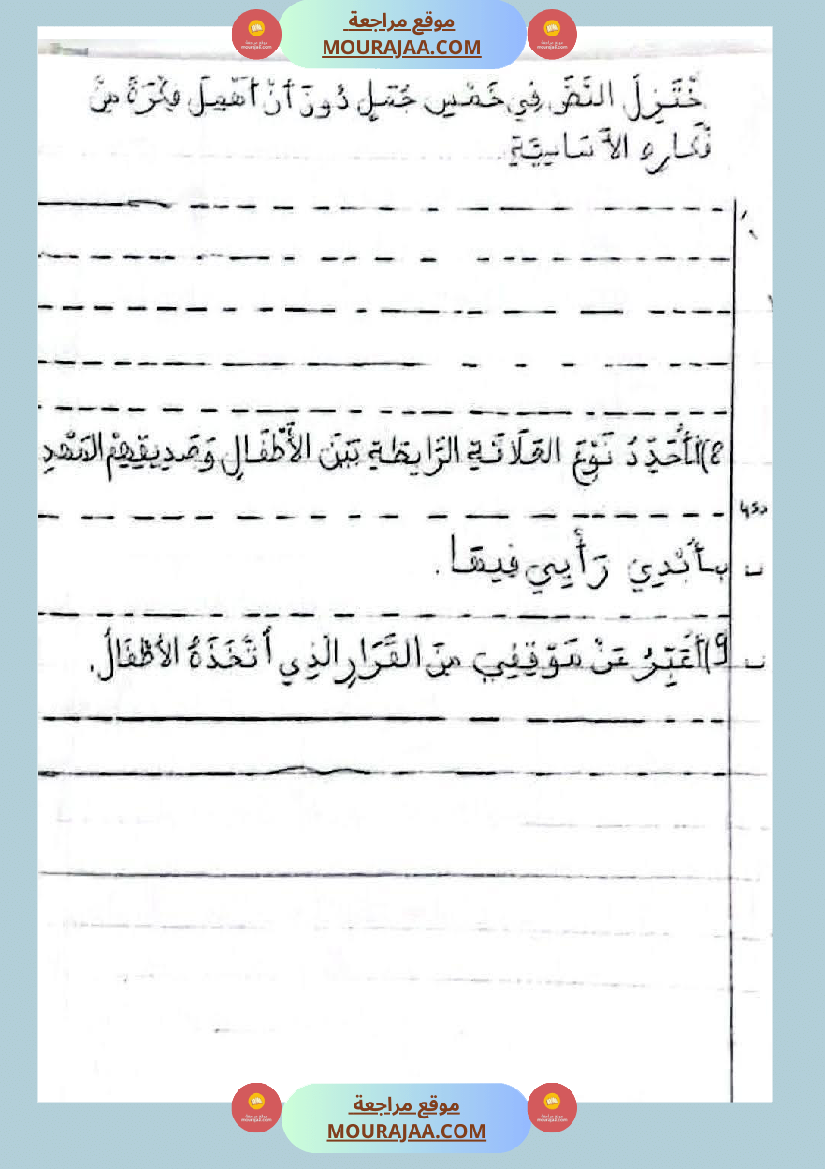 موقع مراجعة
MOURAJAA.COM
خْتَزِلَ النَّصَّ فِي خَمْسِ جُمَلٍ دُونَ أَنْ أُهْمِلَ فِكْرَةً مِنْ
فْكَارِهِ الأَسَاسِيَّةِ.
8)أ-أُحَدِّدُ نَوْعَ العَلَاقَةِ الرَّابِطَةِ بَيْنَ الأَطْفَالِ وَصَدِيقِهِمْ
ب-أُبْدِي رَأْيِي فِيهَا.
9)أُعَبِّرُ عَنْ مَوْقِفِي مِنَ القَرَارِ الَّذِي اتَّخَذَهُ الأَطْفَالُ.
موقع مراجعة
MOURAJAA.COM